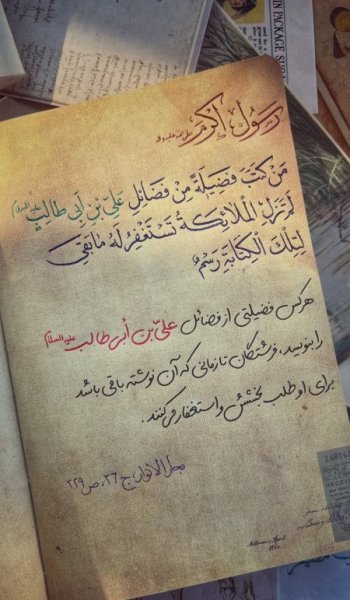 رسول اکرم صلی الله علیه وآله
مَنْ کَتَبَ فَضیلَةً مِنْ فَضائِلِ عَلِیِّ بْنِ أَبی طالِبٍ علیه السلام
لَمْ تَزَلِ الْمَلائِکَةُ تَسْتَغْفِرُ لَهُ ما بَقِیَ
لِتِلْکَ الْکِتابَةِ رَسْمٌ
هرکس فضیلتی از فضائل علیّ بن أبی طالب علیه السلام
را بنویسد، فرشتگان تا زمانی که آن نوشته باقی باشد
برای او طلب بخشش و استغفار می‌کنند.
بحار الانوار، ج ۲۶، ص ۲۲۹
IN PACKAGE SUGA